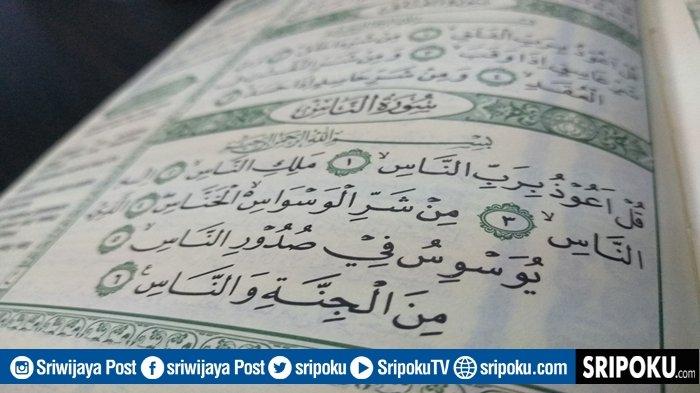 قُلْ اَعُوْذُ بِرَبِّ الْفَلَقِ
شَرِّ غَاسِقٍ اِذَا وَقَبَ ٣ وَمِنْ شَرِّ
الْعُقَدِ ٤ وَمِنْ شَرِّ حَاسِدٍ اِذَا حَسَدَ
سُوْرَةُ النَّاسِ
بِسْمِ اللّٰهِ الرَّحْمٰنِ الرَّحِيْمِ
قُلْ اَعُوْذُ بِرَبِّ النَّاسِۙ ١ مَلِكِ النَّاسِۙ ٢
النَّاسِۙ ٣ مِنْ شَرِّ الْوَسْوَاسِۙ الْخَنَّاسِۖ ٤ الَّذِيْ
يُوَسْوِسُ فِيْ صُدُوْرِ النَّاسِۙ ٥
مِنَ الْجِنَّةِ وَالنَّاسِ ٦
Sriwijaya Post sriwijaya Post sripoku SripokuTV sripoku.com SRIPOKU.com